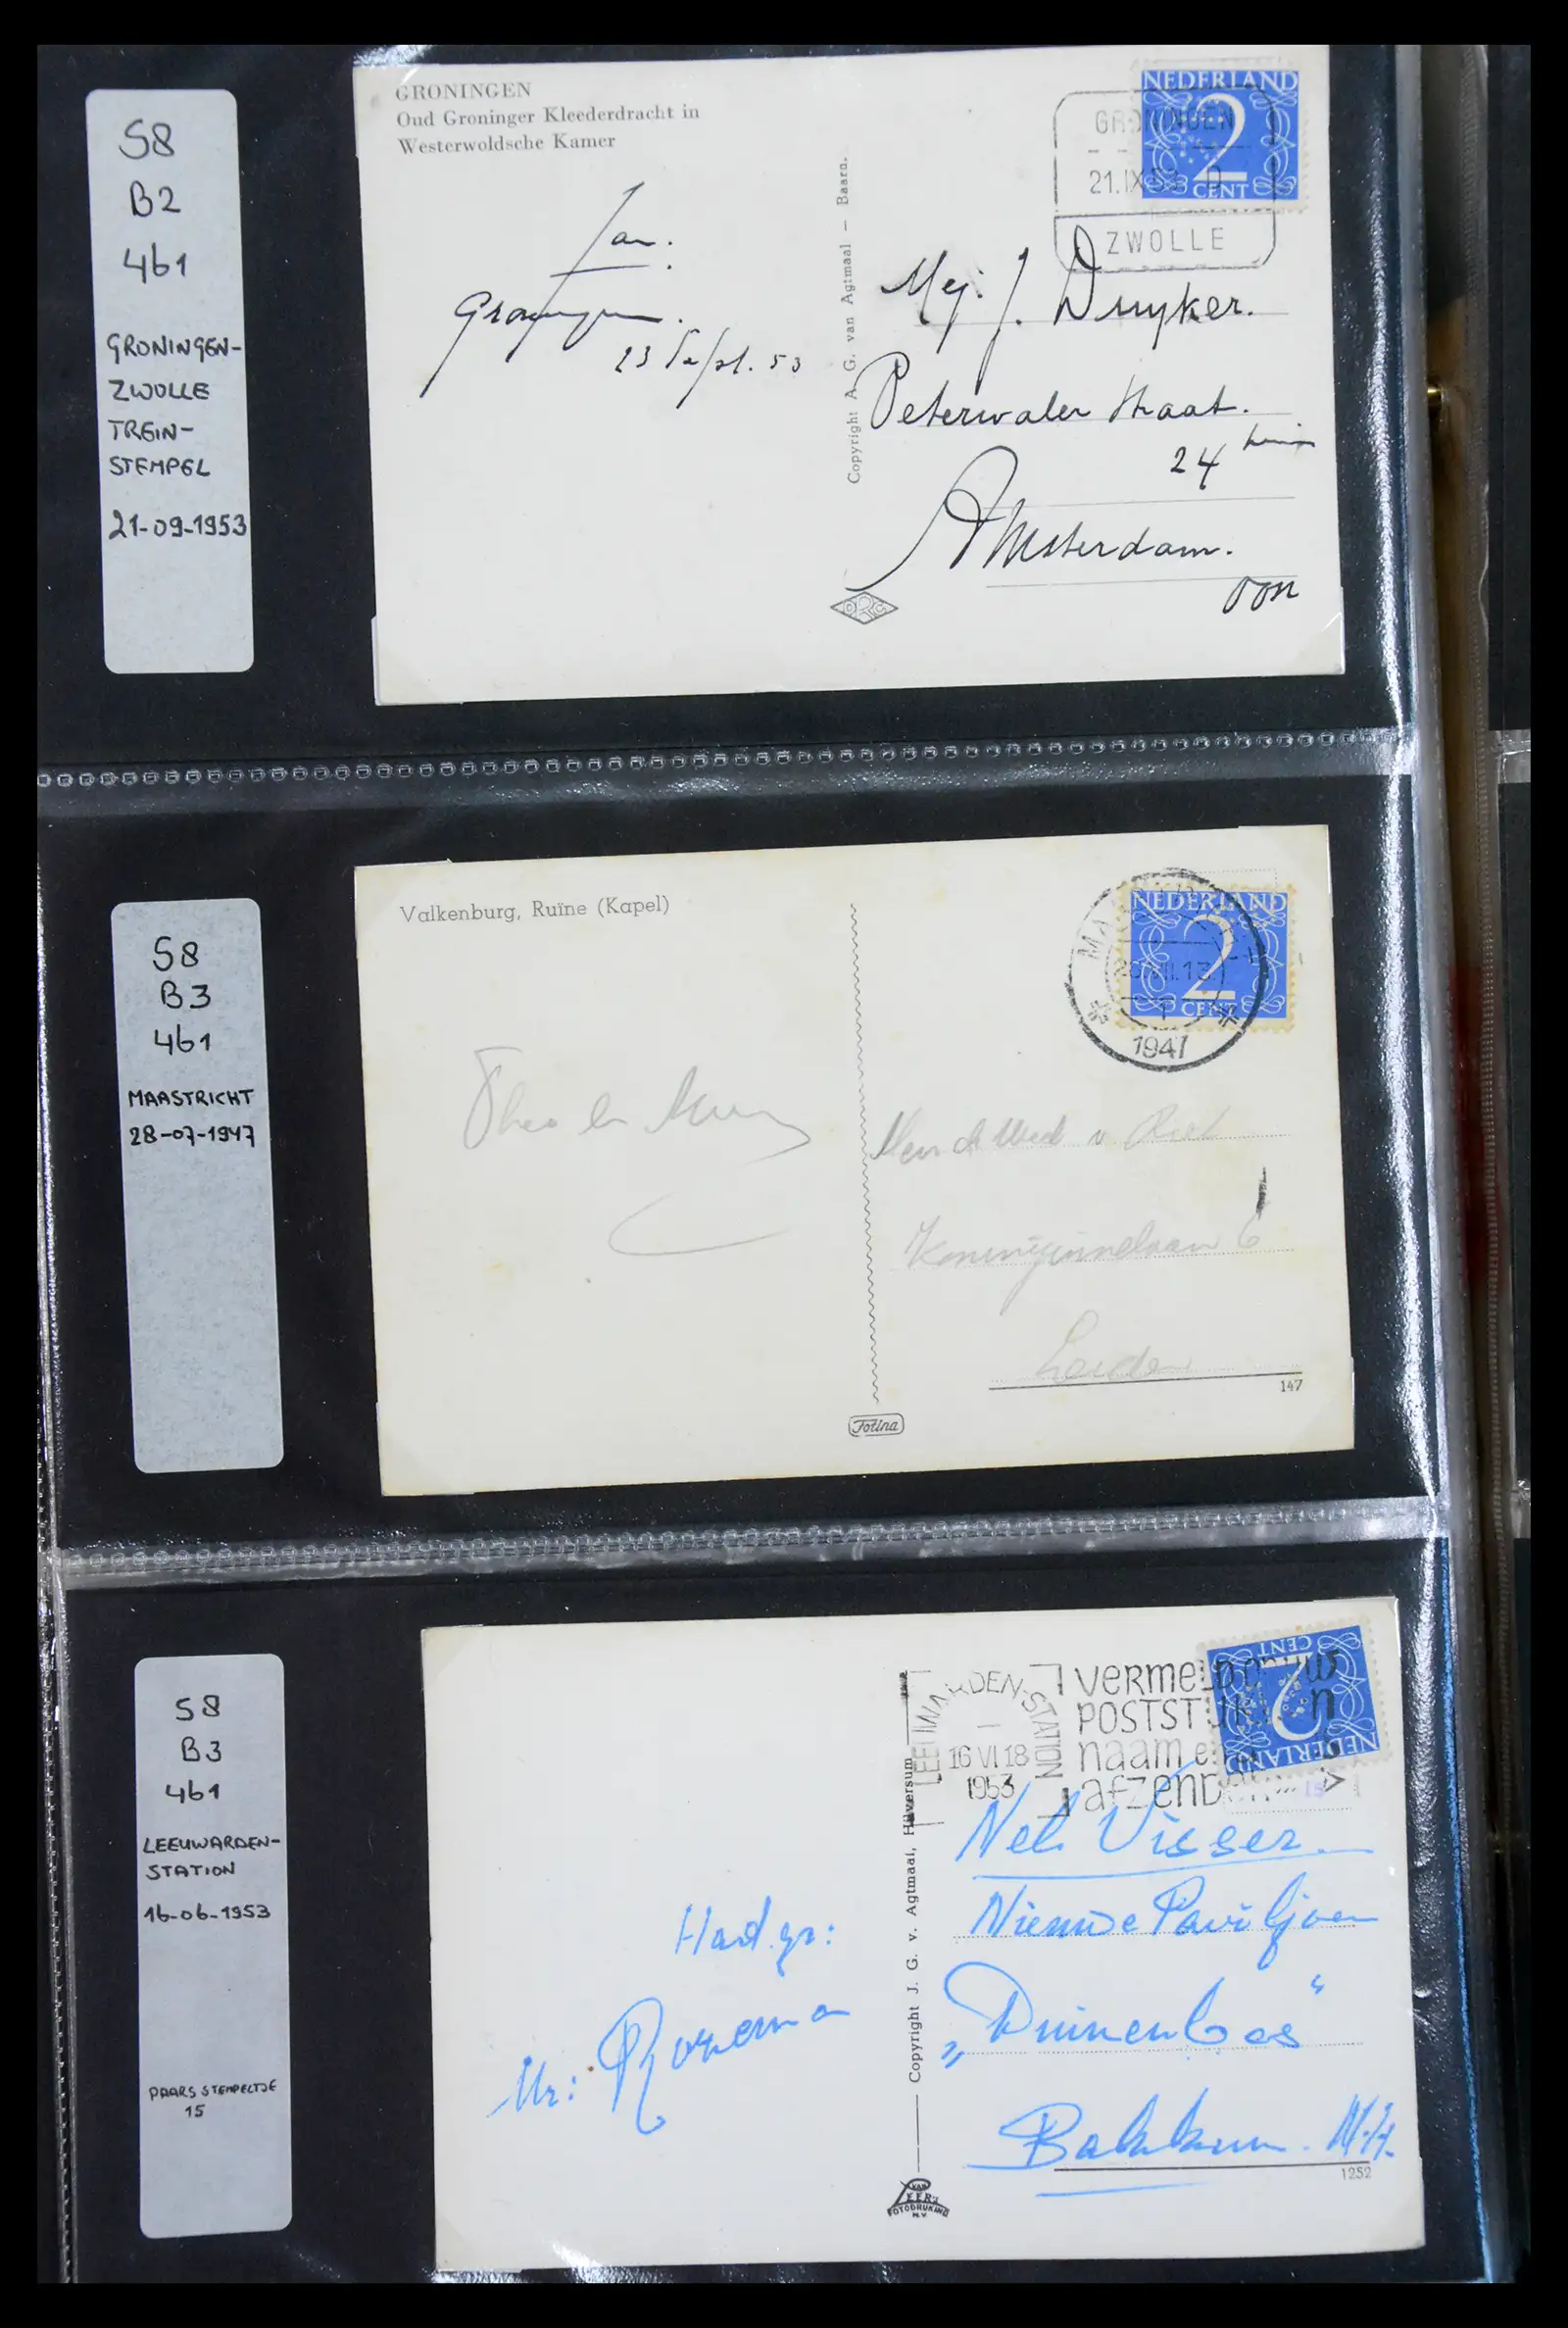 S8
B2
4b1
GRONINGEN-
ZWOLLE
TREIN-
STEMPEL
21-09-1953
GRONINGEN
Oud Groninger Kleederdracht in
Westerwoldsche Kamer
Jan.
Groningen.
23 Sept. 53
Copyright A. G. van Agtmaal — Baarn.
NEDERLAND
2
CENT
GRONINGEN
21.IX 53 D
ZWOLLE
Mej. J. Duyker.
Peterwaler straat.
24
Amsterdam.
Oon
DRC
S8
B3
4b1
MAASTRICHT
28-07-1947
Valkenburg, Ruïne (Kapel)
NEDERLAND
2
CENT
1947
Koninginnelaan 6
Leiden
147
Fotina
S8
B3
4b1
LEEUWARDEN-
STATION
16-06-1953
PAARS STEMPELTJE
15
LEEUWARDEN-STATION
16 VI 18
1953
VERMELD OP UW
POSTSTUKKEN
naam en
afzender
NEDERLAND
2
CENT
15
Copyright J. G. v. Agtmaal, Hilversum
Had. gr:
Mr: Rozema
Nel. Visser.
Nieuwe Paviljoen
„Duinenbos"
Bakkum. N.H.
1252
VAN
LEER'S
FOTODRUKIND
N.V.